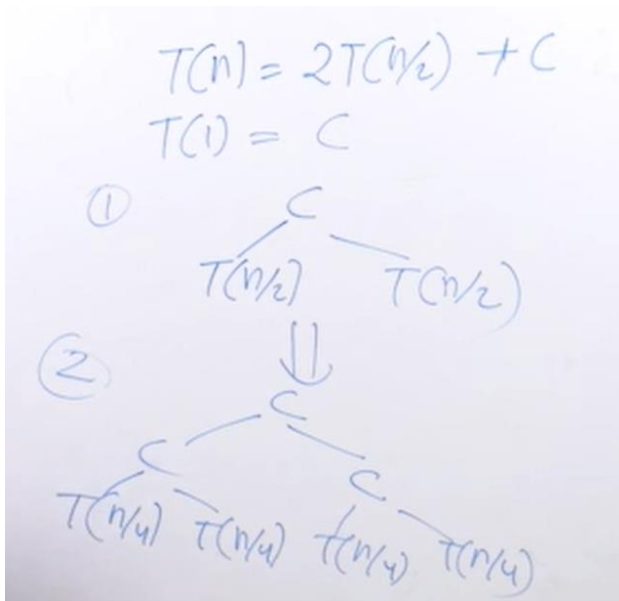 T(n) = 2T(n/2) + C
T(1) = C
①
C
T(n/2) T(n/2)
②
C
C C
T(n/4) T(n/4) T(n/4) T(n/4)